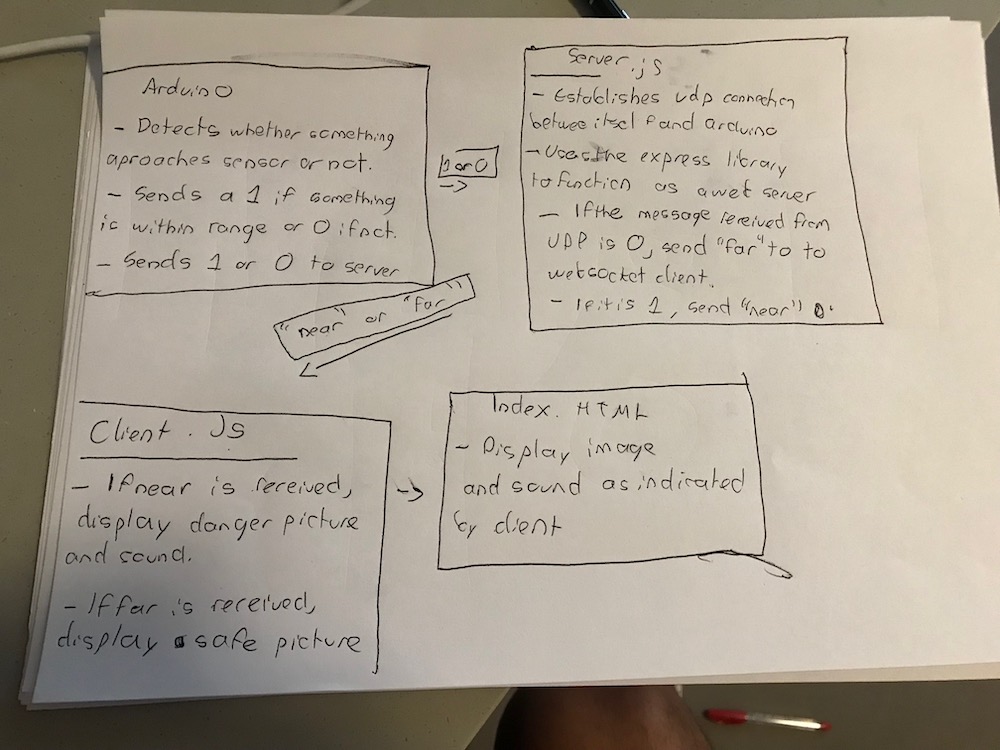 Arduino
- Detects whether something
aproaches sensor or not.
- Sends a 1 if something
is within range or 0 if not.
- Sends 1 or 0 to server
1 or 0
Server.js
- Establishes udp connection
between itself and arduino
- Uses the express library
to function as a web server
- If the message received from
UDP is 0, send "far" to to
websocket client.
- If it is 1, send "near"
"near" or "far"
Client.Js
- If near is received,
display danger picture
and sound.
- If far is received,
display safe picture
Index.HTML
- Display image
and sound as indicated
by client